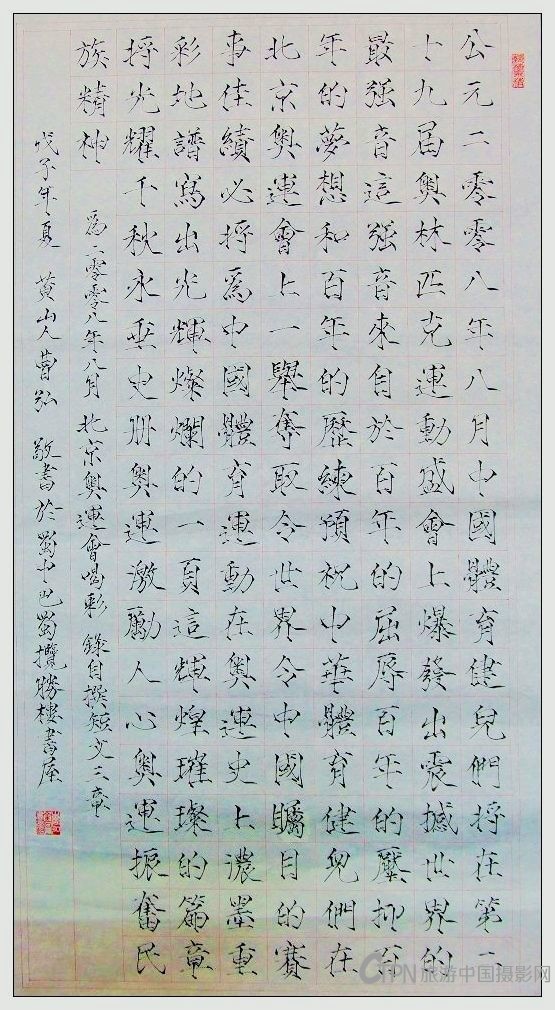 公元二零零八年八月中國體育健兒們將在第二
十九屆奧林匹克運動盛會上爆發出震撼世界的
最強音這強音來自於百年的屈辱百年的壓抑百
年的夢想和百年的歷練預祝中華體育健兒們在
北京奧運會上一舉奪取令世界令中國矚目的賽
事佳績必將爲中國體育運動在奧運史上濃墨重
彩地譜寫出光輝燦爛的一頁這輝煌璀璨的篇章
將光耀千秋永垂史册奧運激勵人心奧運振奮民
族精神 爲二零零八年八月北京奧運會喝彩 錄自撰短文三章
戊子年夏 黃山人曹弘 敬書於蜀中巴蜀攬勝樓書屋
CTPN旅游中国摄影网